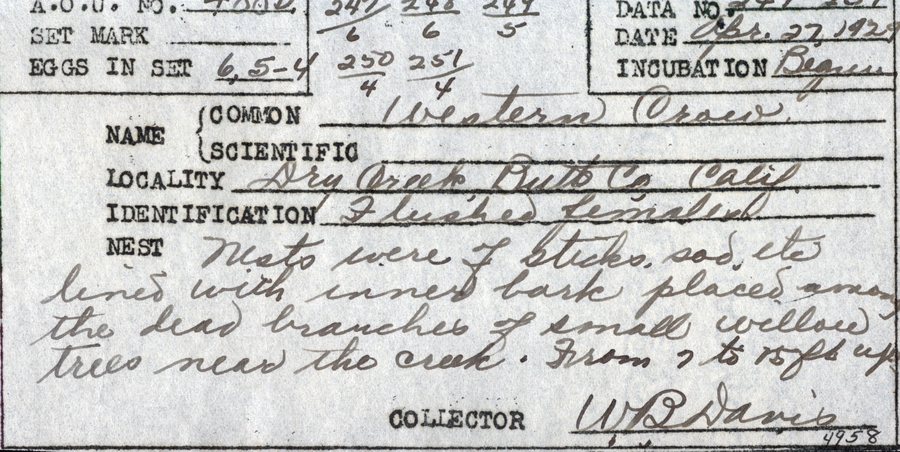 A.O.U. NO. 247 248 249 DATA NO.
SET MARK 6 6 5 DATE Apr. 27, 192
EGGS IN SET 6, 5-4 250 251 INCUBATION Begun
4 4
NAME COMMON Western Crow.
SCIENTIFIC
LOCALITY Dry Creek Butte Co. Calif
IDENTIFICATION Flushed females.
NEST Nests were of sticks. sod, etc
lined with inner bark placed among
the dead branches of small willow
trees near the creek. From 7 to 15 ft up
COLLECTOR W B Davis
4958